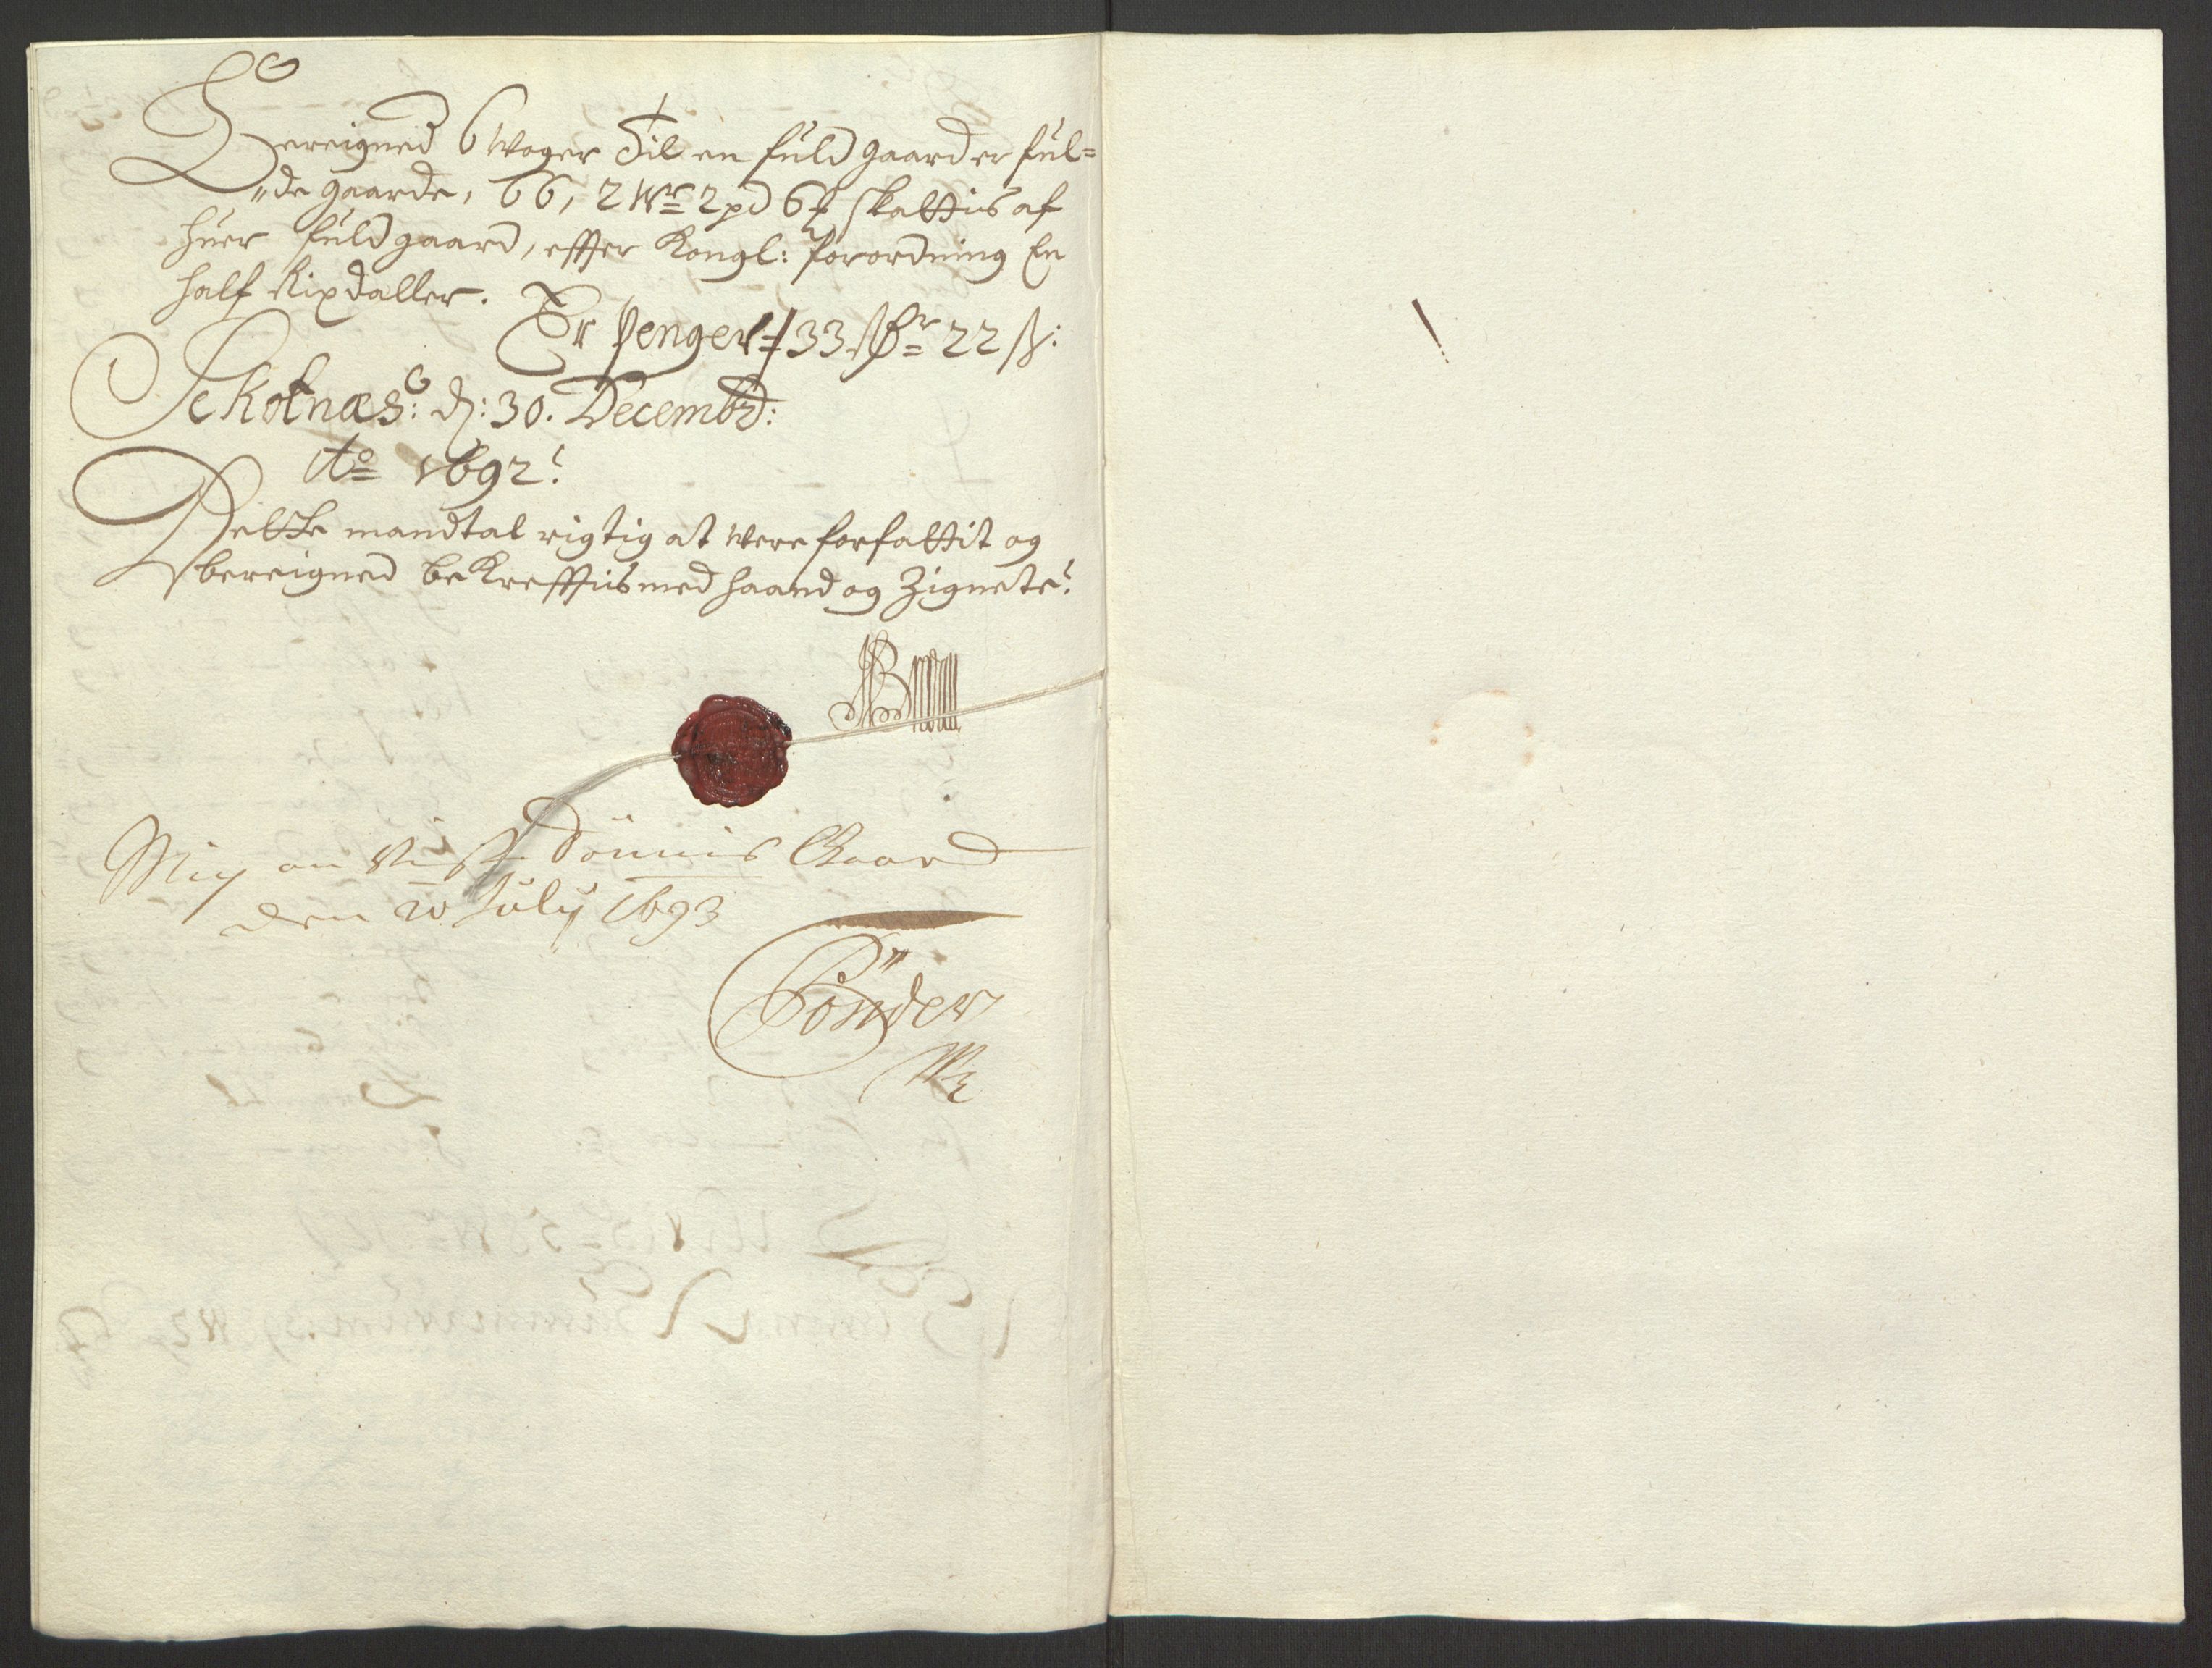 Bereigned 6 Woger Til en fuld gaard er ful=
"de gaarde, 66, 2 Wr 2 pd 6 skattis af
huer fuld gaard, effter Kongl: forordning En
half Rixdaller.
Er Penger 33 Rdr 22 ß:
Schotnæs: d: 30. Decembr:
Ao 1692.
Dette mandtal rigtig at were forfattit og
bereigned bekrefftis med haand og Zignete.
den 20 July 1693
Tönder